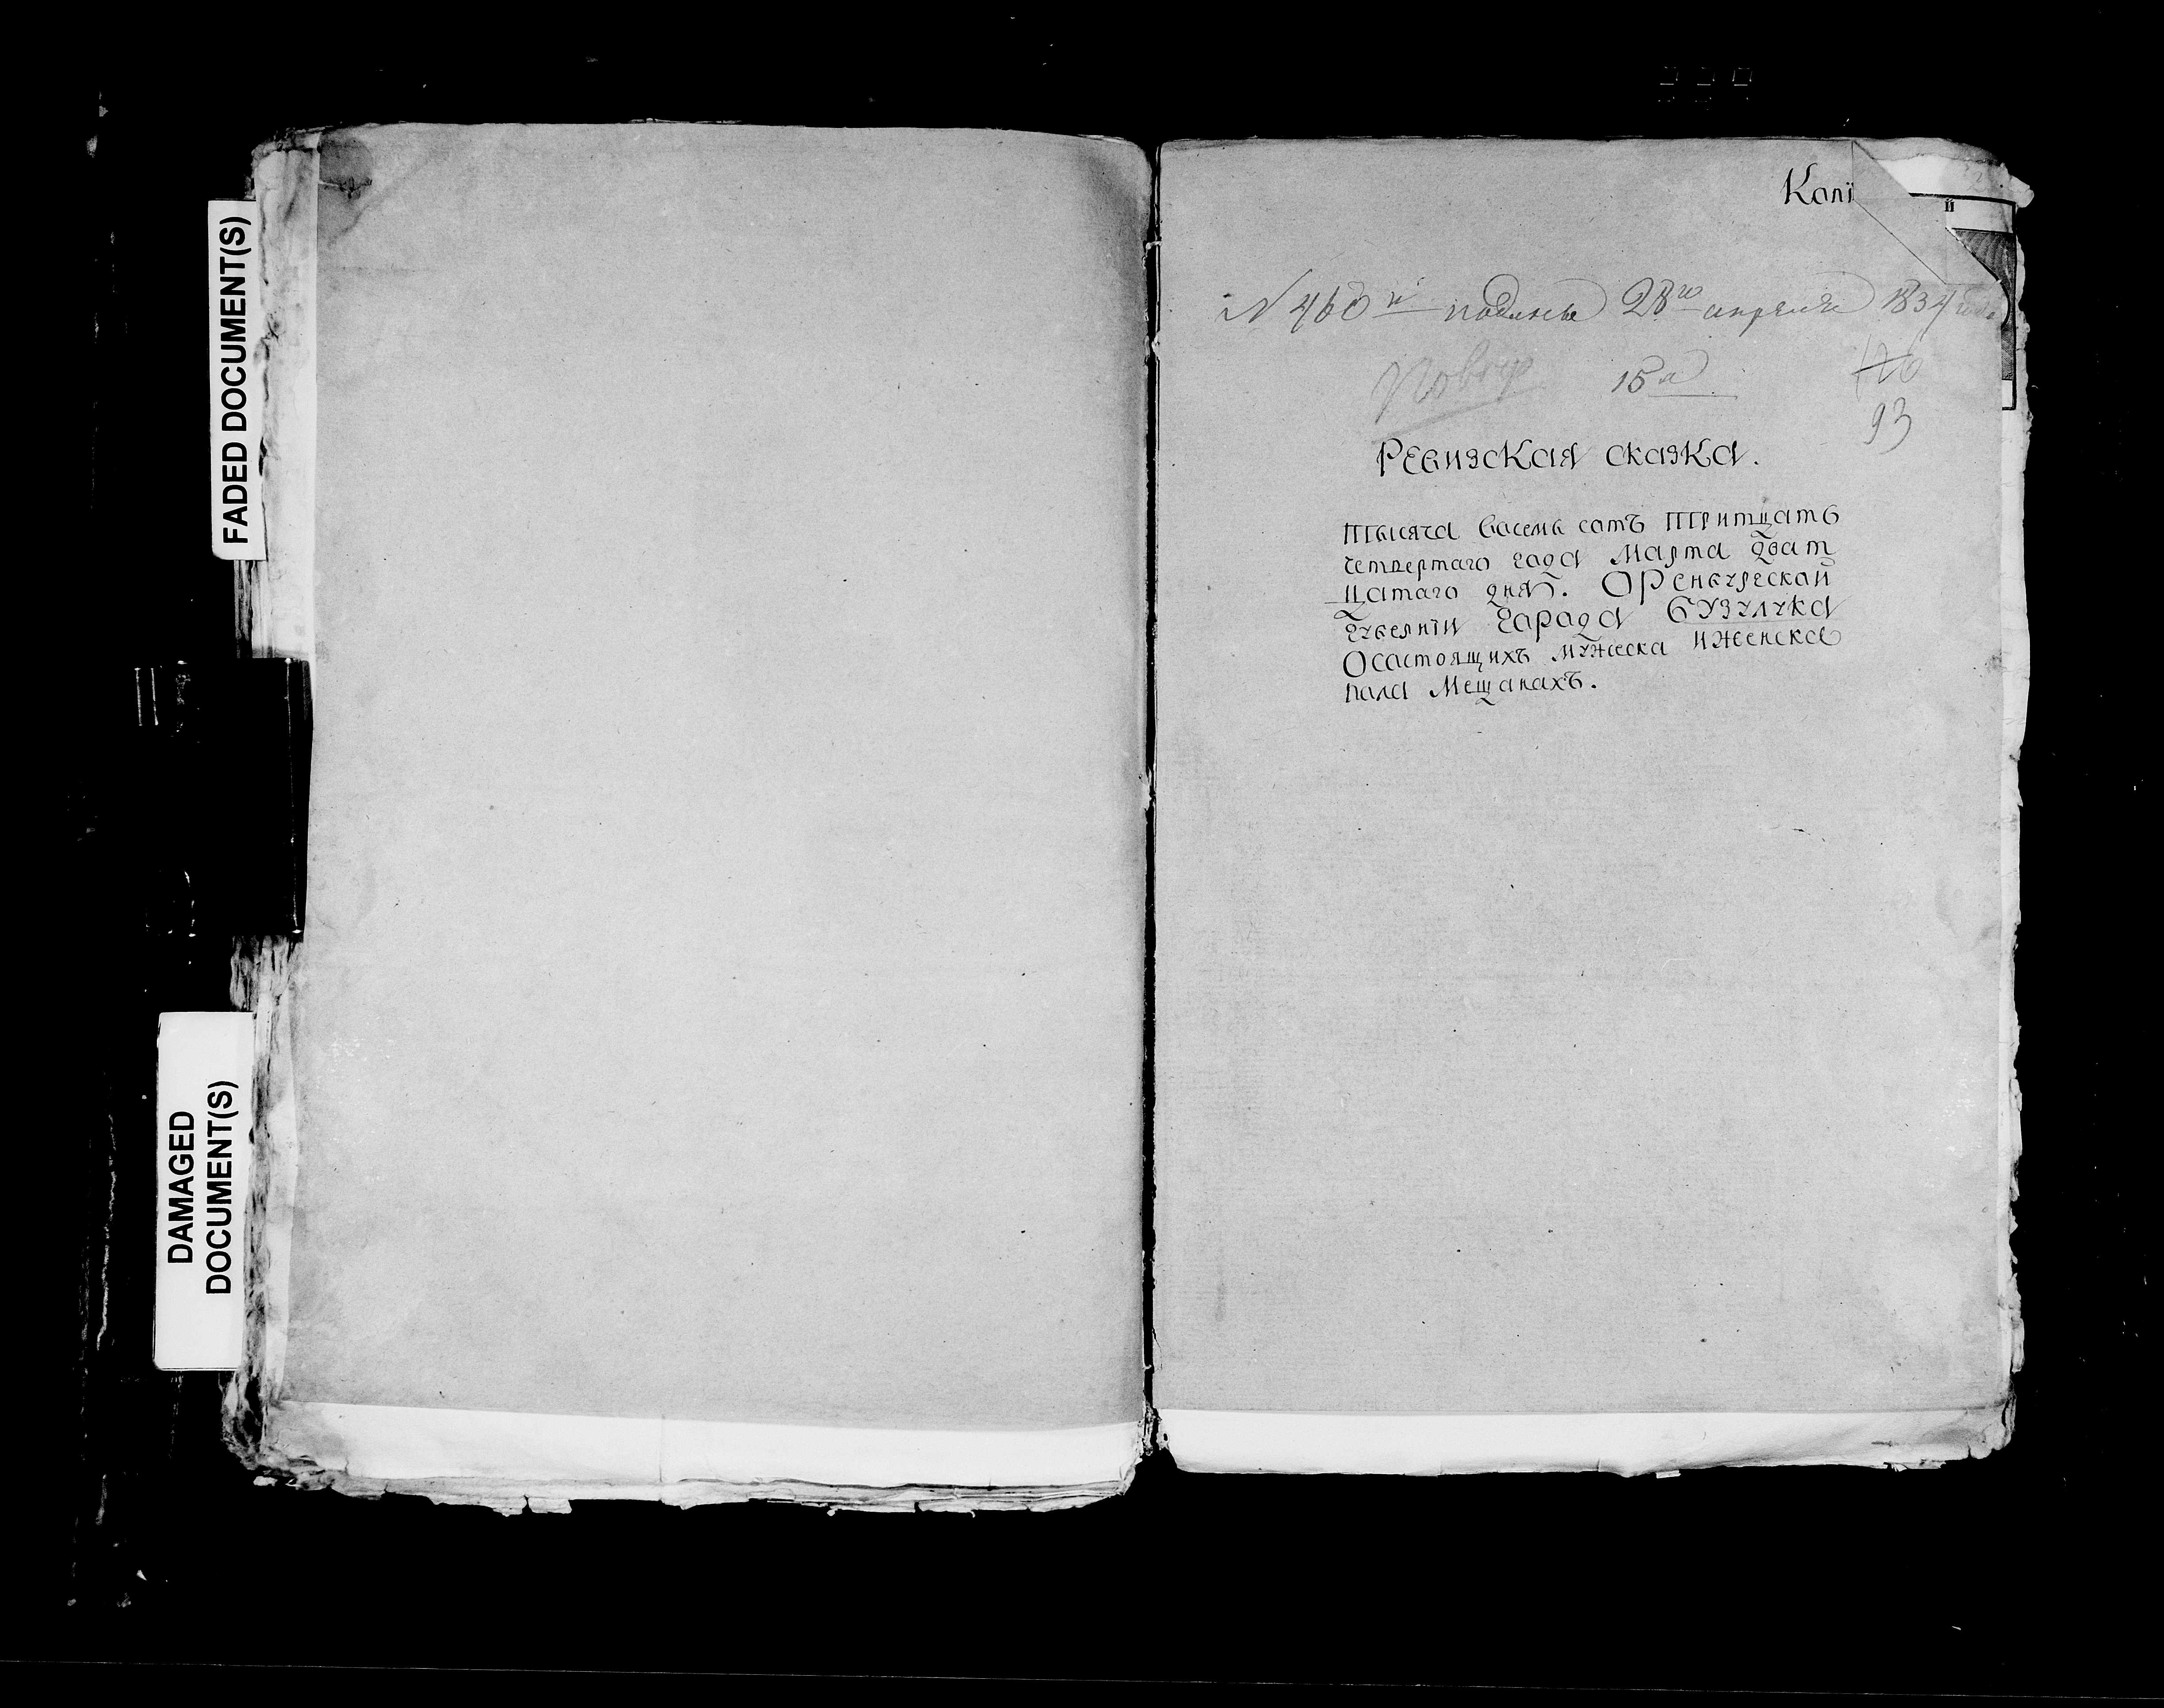 FADED DOCUMENT(S)
DAMAGED
DOCUMENT(S)
Копї
й
N 460 й 28го апреля 1834 года
15 а
120
93
Ревизская сказка.
Тысяча васемь сотъ Тритцать
четвертаго года Марта Дват
цатаго дня. Оренбургской
губернїи Города Бузулука
О састоящихъ мужеска и женска
пола Мещанахъ.